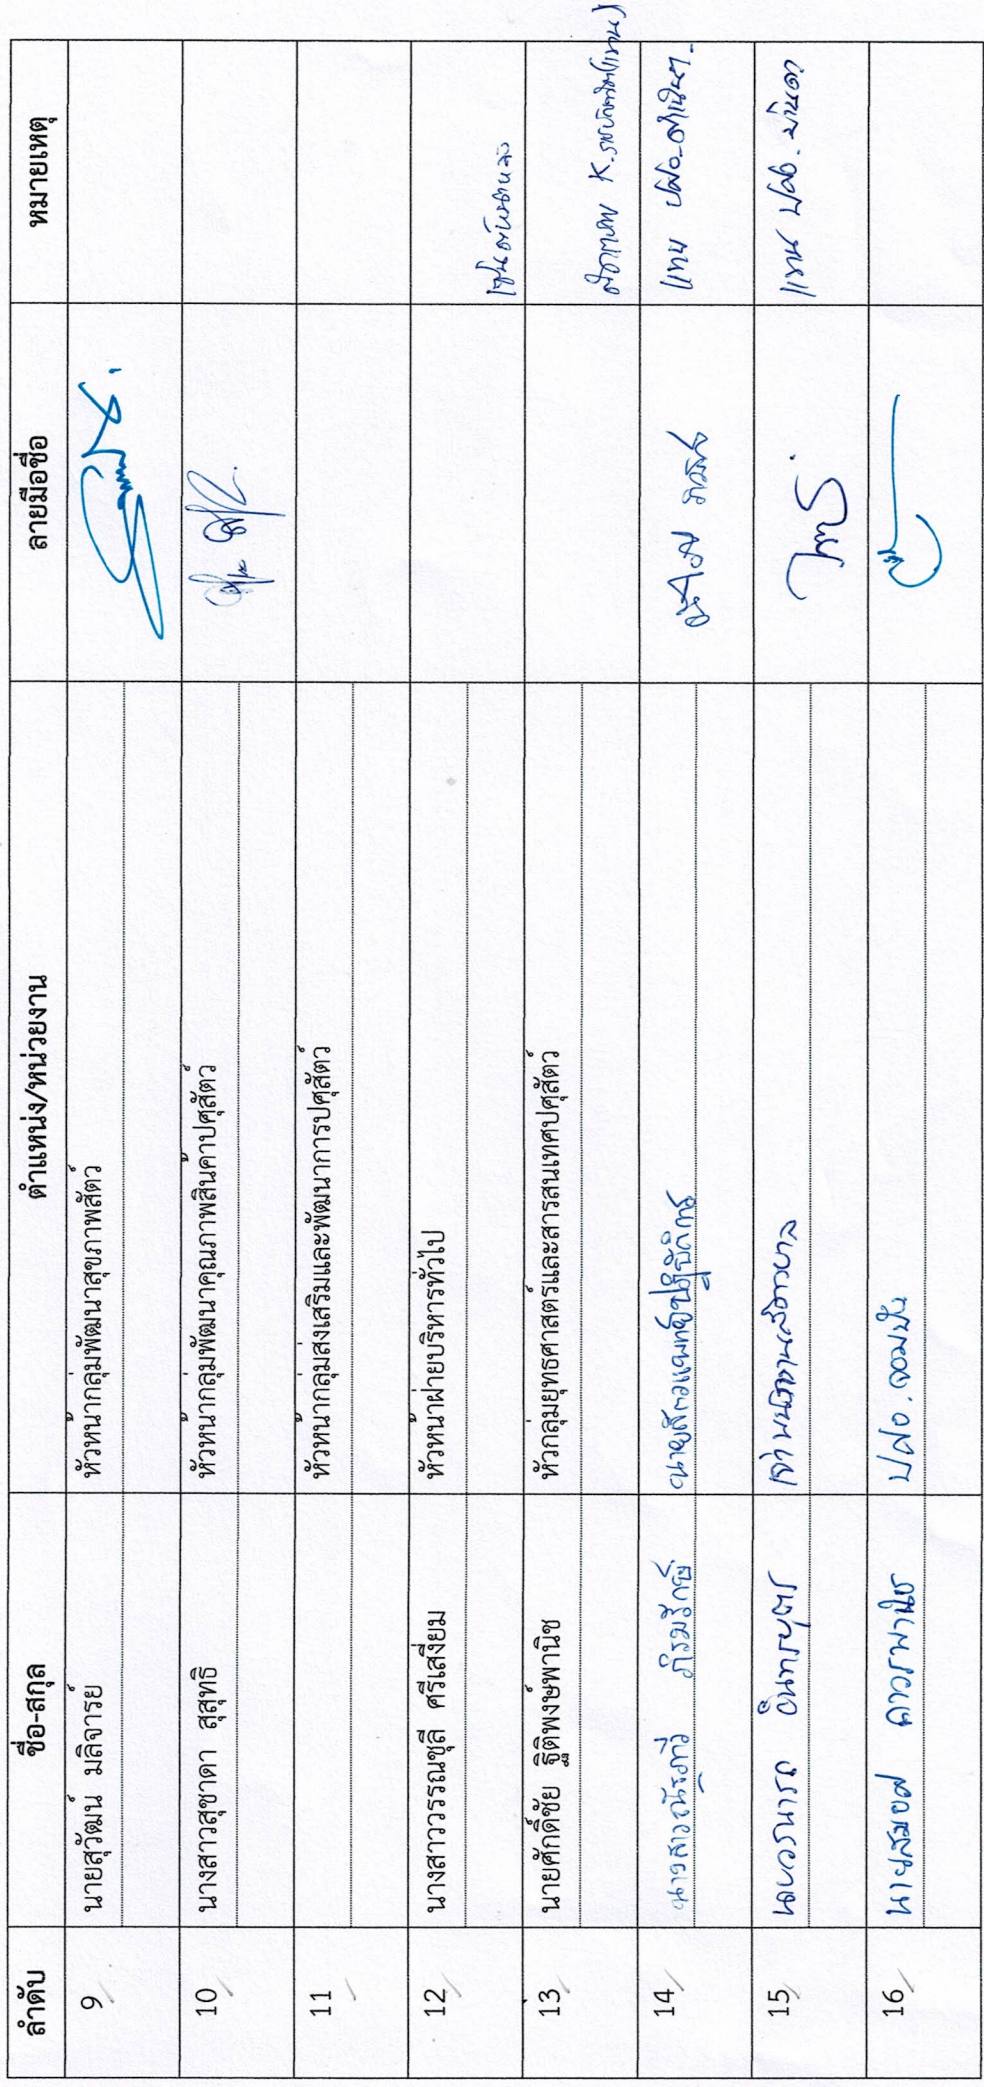 ลำดับ ชื่อ-สกุล ตำแหน่ง/หน่วยงาน ลายมือชื่อ หมายเหตุ
9 นายสุวัฒน์ มลิจารย์ หัวหน้ากลุ่มพัฒนาสุขภาพสัตว์
10 นางสาวสุชาดา สุสุทธิ หัวหน้ากลุ่มพัฒนาคุณภาพสินค้าปศุสัตว์
11 หัวหน้ากลุ่มส่งเสริมและพัฒนาการปศุสัตว์
12 นางสาววรรณชุลี ศรีเสงี่ยม หัวหน้าฝ่ายบริหารทั่วไป
13 นายศักดิ์ชัย ฐิติพงษ์พานิช หัวกลุ่มยุทธศาสตร์และสารสนเทศปศุสัตว์
14 นางสาว ภิรมรักษ์ นายสัตวแพทย์ปฏิบัติการ แทน ปศอ.
15 อินทรบุตร เจ้าพนักงานสัตวบาล แทน ปศอ.
16 นายสมยศ ถาวรพานิช ปศอ. จอมบึง